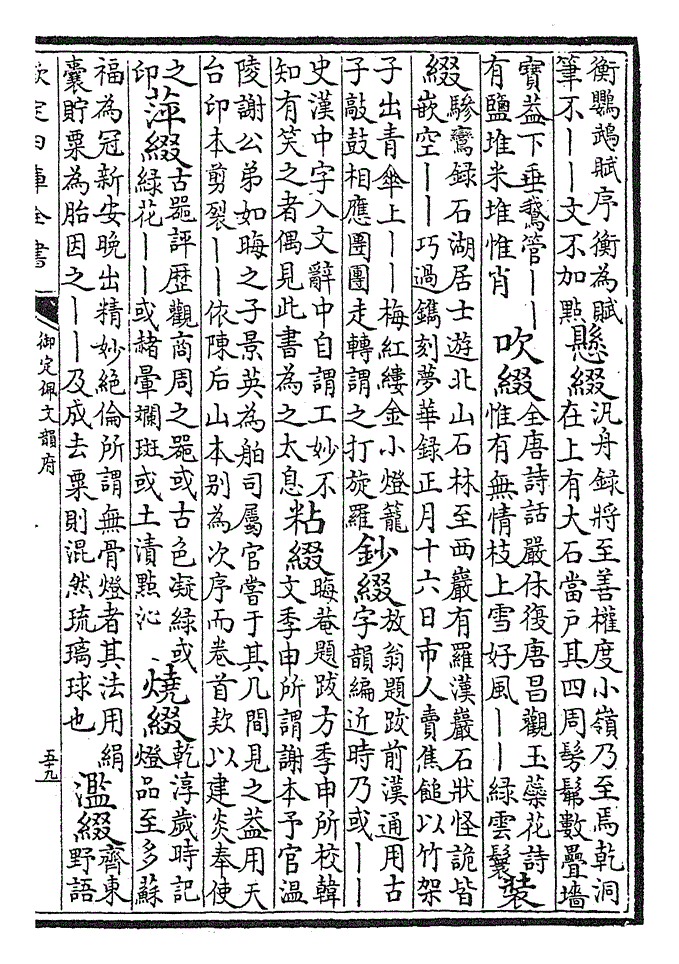 衡鸚鵡賦序衡為賦
筆不——文不加點
懸綴
汎舟錄將至善權度小嶺乃至焉乾洞
在上有大石當戶其四周髣髴數疊墻
寶益下垂鵝管——
有鹽堆米堆惟肖
吹綴
全唐詩話嚴休復唐昌觀玉蘂花詩
惟有無情枝上雪好風——綠雲鬟
裝
綴
驂鸞録石湖居士遊北山石林至西巖有羅漢巖石狀怪詭皆
嵌空——巧過鐫刻夢華錄正月十六日市人賣焦䭔以竹架
子出青傘上——梅紅縷金小燈籠
子敲鼓相應團團走轉謂之打旋羅
鈔綴
放翁題跋前漢通用古
字韻編近時乃或——
史漢中字入文辭中自謂工妙不
知有笑之者偶見此書為之太息
粘綴
晦菴題跋方季申所校韓
文季申所謂謝本予官溫
陵謝公弟如晦之子景英為舶司屬官嘗于其几間見之益用天
台印本剪裂——依陳后山本别為次序而卷首欵以建炎奉使
之
印
萍綴
古器評歴觀商周之器或古色凝綠或
綠花——或赭暈斕斑或土漬點沁
燒綴
乾淳歲時記
燈品至多蘇
福為冠新安晚出精妙絶倫所謂無骨燈者其法用絹
囊貯粟為胎因之——及成去粟則混然琉璃球也
濫綴
齊東
野語
欽定四庫全書
御定佩文韻府